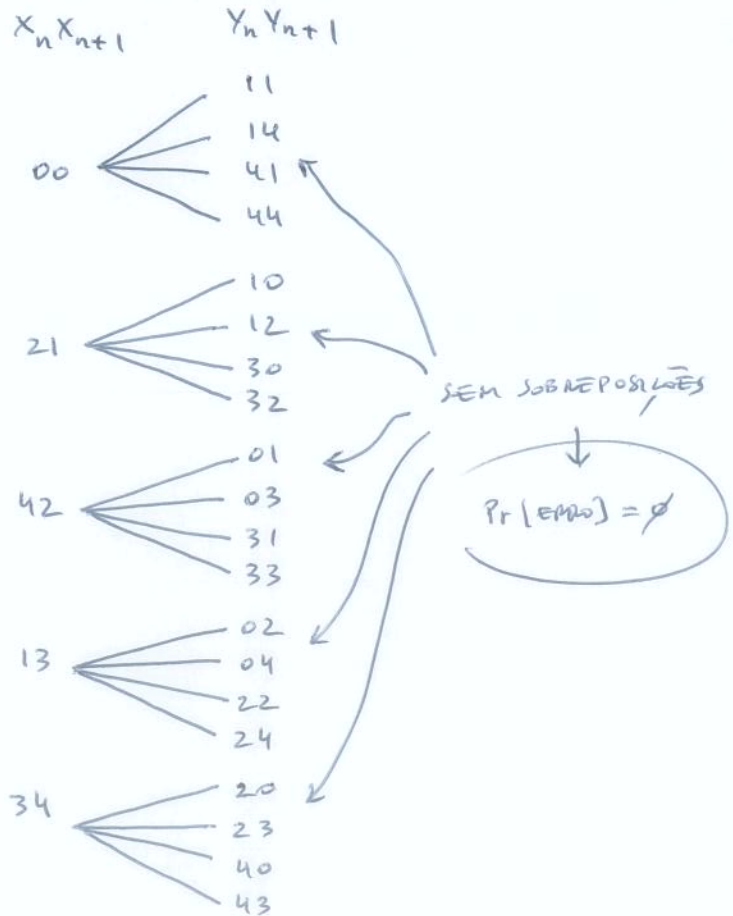 XnXn+1 YnYn+1
00
11
14
41
44
21
10
12
30
32
42
01
03
31
33
13
02
04
22
24
34
20
23
40
43
SEM SOBREPOSIÇÕES
Pr[ERRO] = ∅